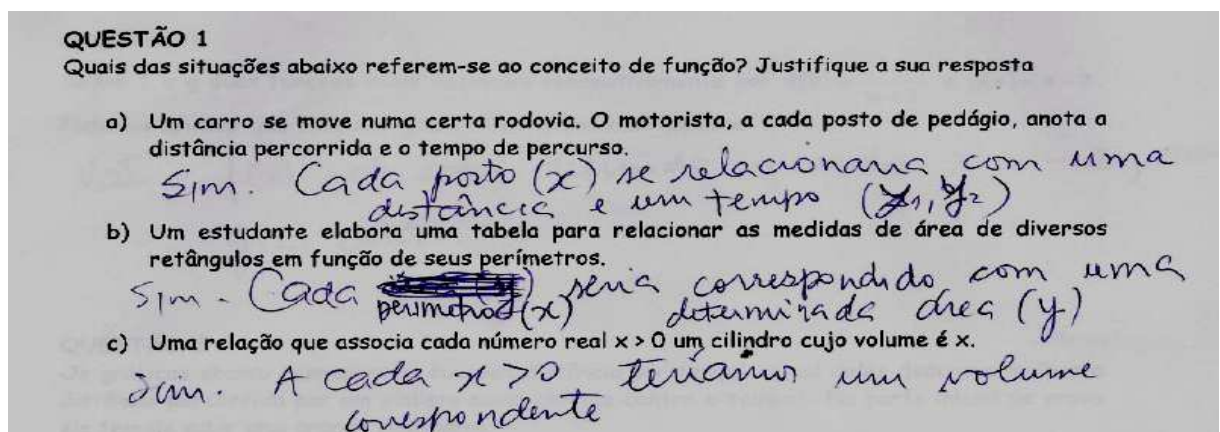 QUESTÃO 1
Quais das situações abaixo referem-se ao conceito de função? Justifique a sua resposta
a) Um carro se move numa certa rodovia. O motorista, a cada posto de pedágio, anota a
distância percorrida e o tempo de percurso.
Sim. Cada posto (x) se relacionaria com uma
distância e um tempo (y1, y2)
b) Um estudante elabora uma tabela para relacionar as medidas de área de diversos
retângulos em função de seus perímetros.
Sim. Cada seria correspondido com uma
perimetro (x) determinada área (y)
c) Uma relação que associa cada número real x > 0 um cilindro cujo volume é x.
Sim. A cada x > 0, teríamos um volume
correspondente